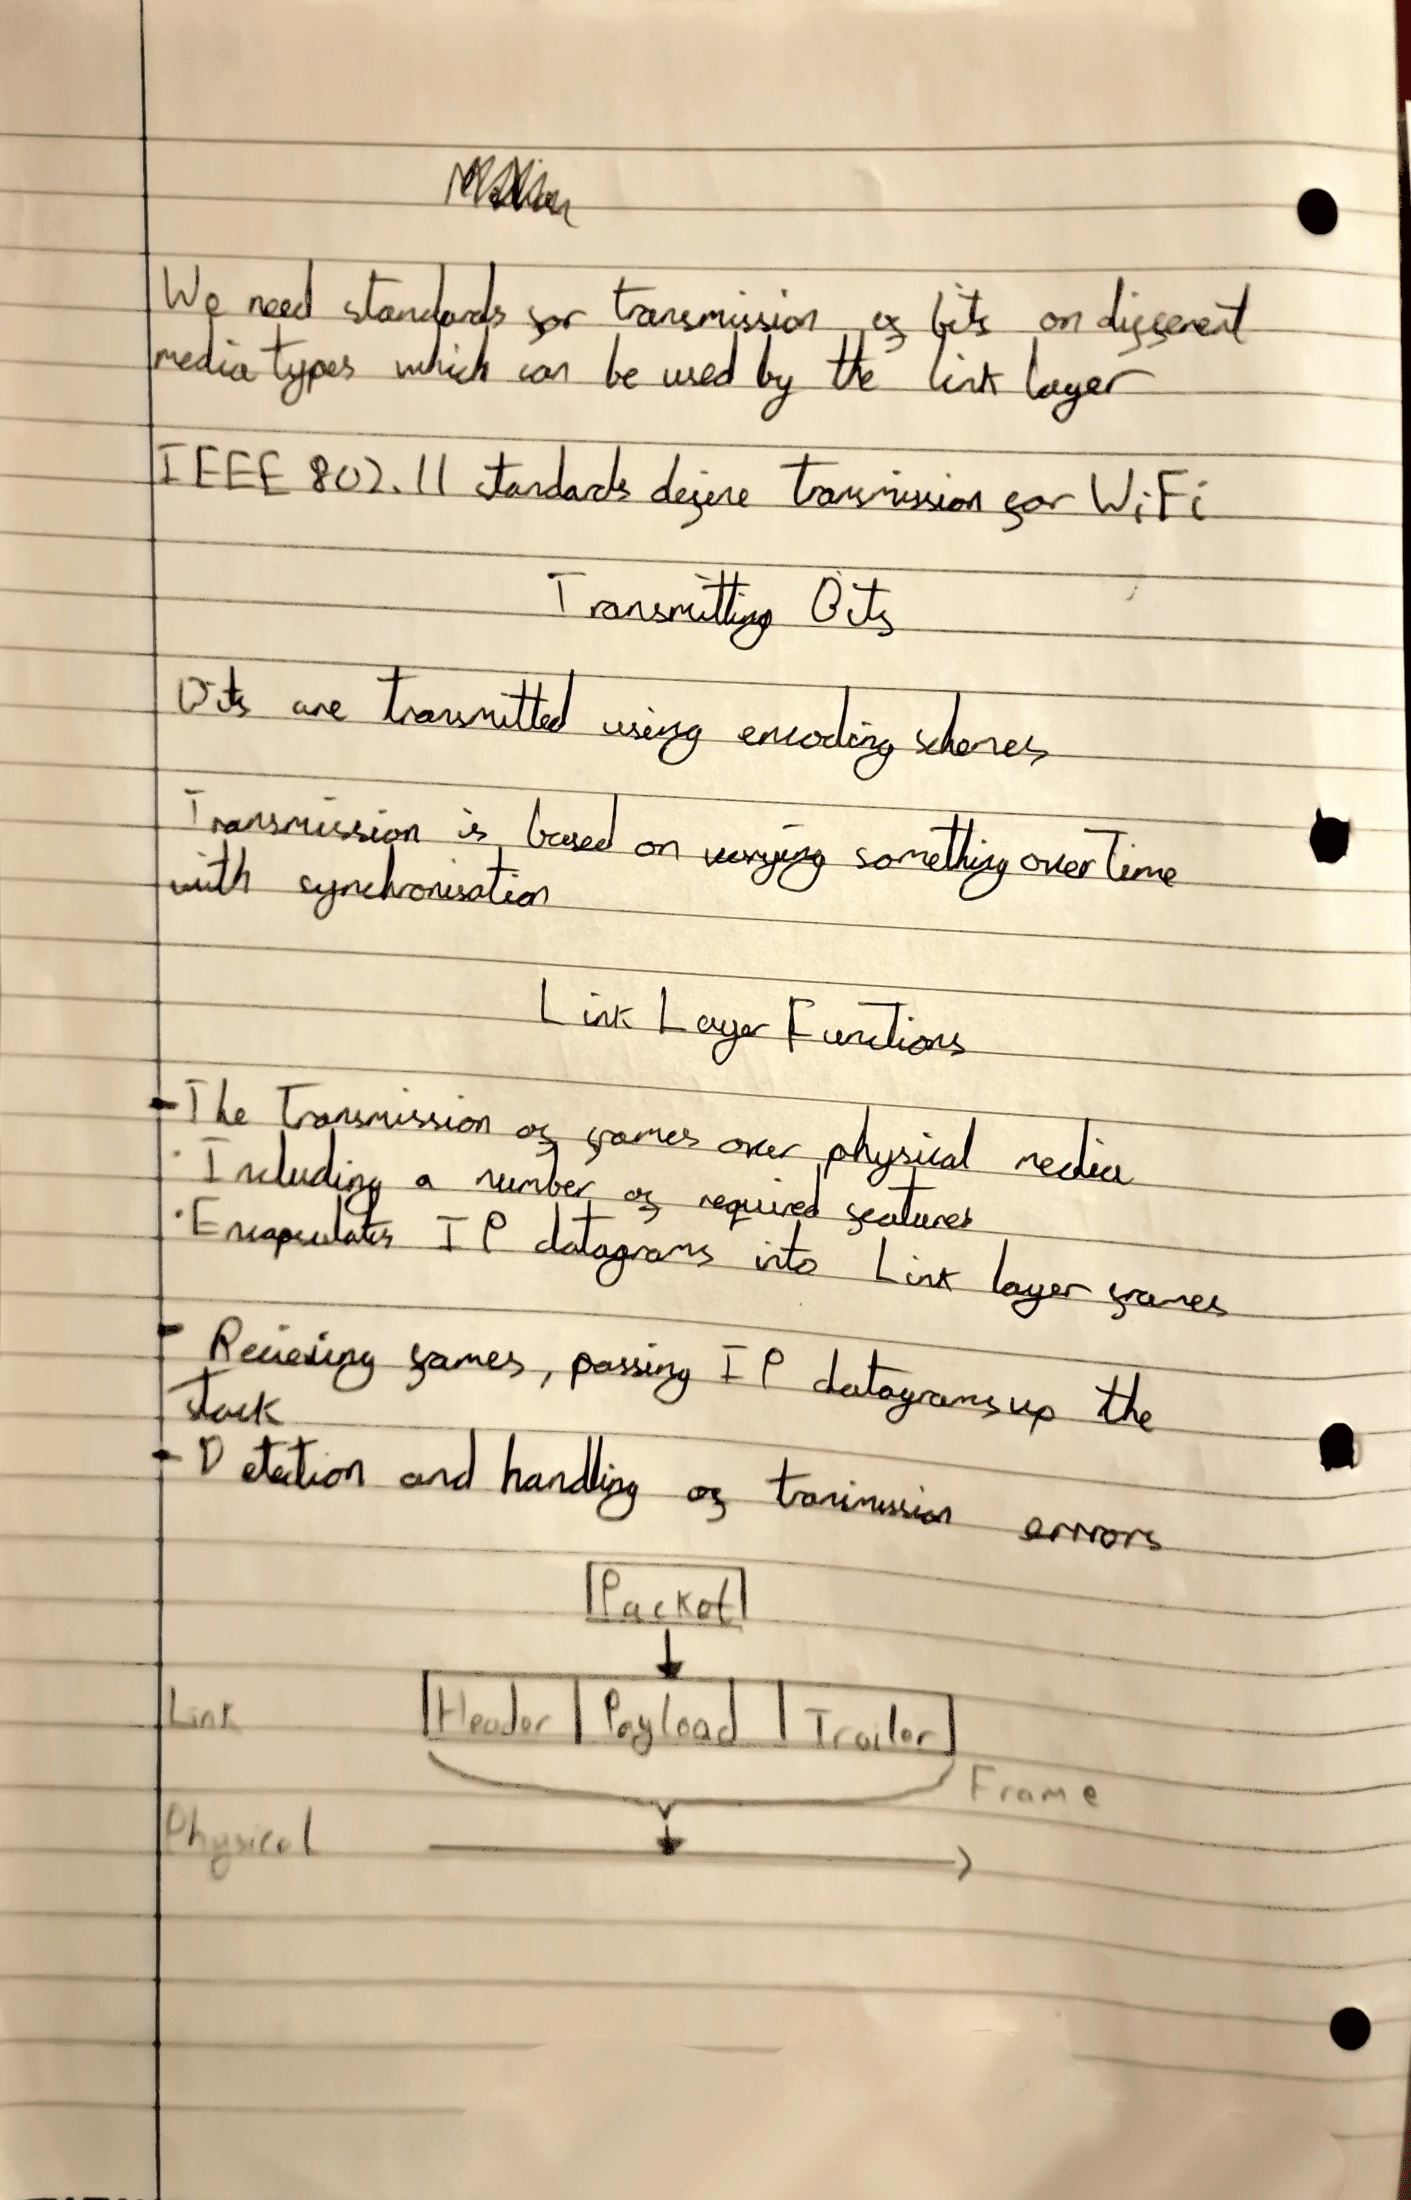 We need standards for transmission of bits on different
media types which can be used by the link layer
IEEE 802.11 standards define transmission for WiFi
Transmitting Bits
Bits are transmitted using encoding schemes
Transmission is based on varying something over time
with synchronisation
Link Layer Functions
- The transmission of frames over physical media
· Including a number of required features
· Encapsulates IP datagrams into Link layer frames
- Recieving frames, passing IP datagrams up the
stack
- Detection and handling of tranimission errrors
Packet
Link Header Payload Trailer
Frame
Physical